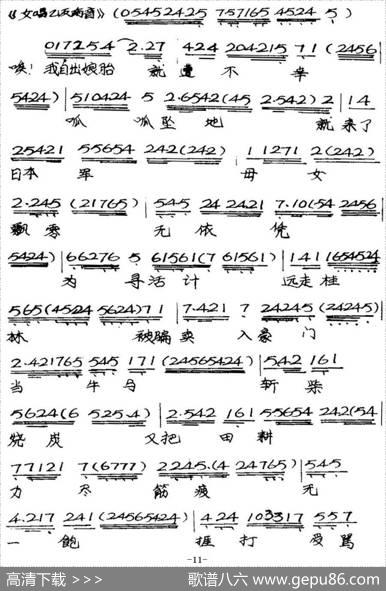 《女唱乙反南音》(05452425 757165 4524 5)
017254 2.27 424 204215 71 (2456
唉! 我自出娘胎 就遭不幸
5424) | 510424 5 2.6542(45 2.542) 2 | 14
呱呱坠地 就来了
25421 55654 242(242) | 1 1271 2(242)
日本军 母女
2.245 (21765) | 545 24 2421 7.10154 2456
飘零 无依凭
5424) | 66276 5 61561(7 61561) | 141 1654524
为寻活计 远走桂
565(4524 5624)71 | 7.421 7 24245 (24245) |
林 被骗卖入豪门
2.421765 545 171 (24565424) | 542 161
当牛马 斩柴
5624(6 525.4) | 2.542 161 55654 242(54 |
烧炭 又把田耕
77121 7(6777) 2245.(4 24765) | 545
力尽筋疲 无
4.217 241 (24565424) | 424 103317 557
一饱 捱打受骂
-11-
高清下载 >>>
歌谱八六 www.gepu86.com